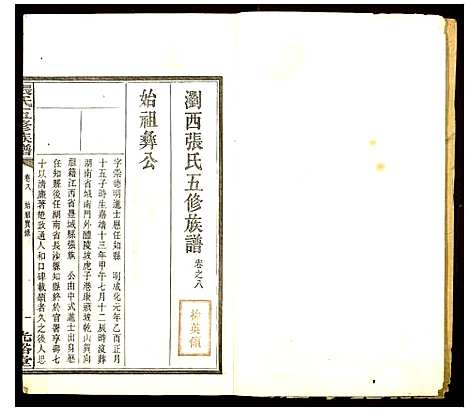 瀏西張氏五修族譜 卷之八
始祖彝公
字崇德明進士歷任知縣 明成化元年乙酉正月
十五子時生嘉靖十三年甲午七月十二辰時沒葬
湖南省城南門外醴陵坡虎子港康頭坡乾山巽向
原籍江西省 縣城張族 公由中式進士出身
任知縣後任湖南省長沙縣知縣終於官署享壽七
十以清廉著楚政通人和口碑載頌者久之後人思
張氏五修族譜 卷八 始祖實錄 一 光裕堂